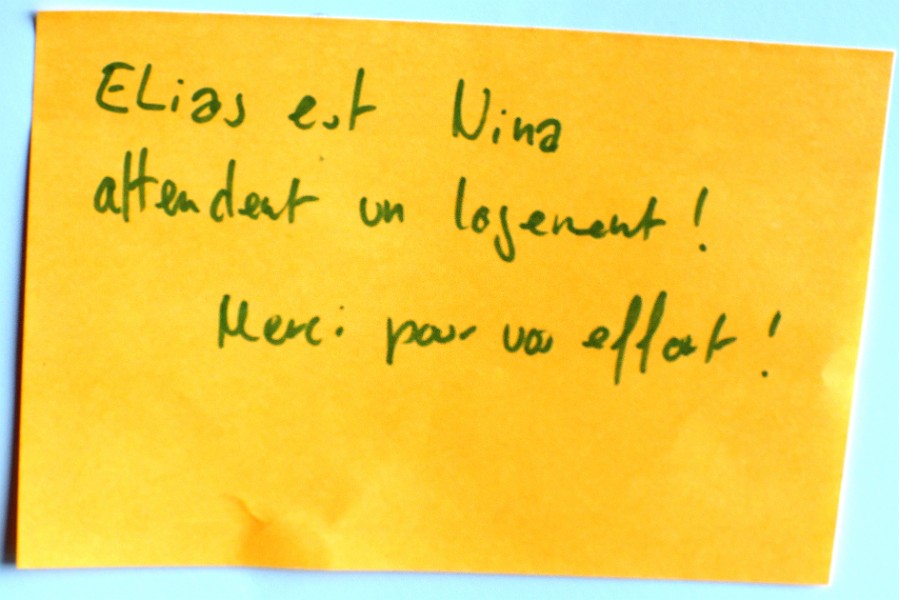 ELias est Nina
attendent un logement !
Merci pour vos effort !